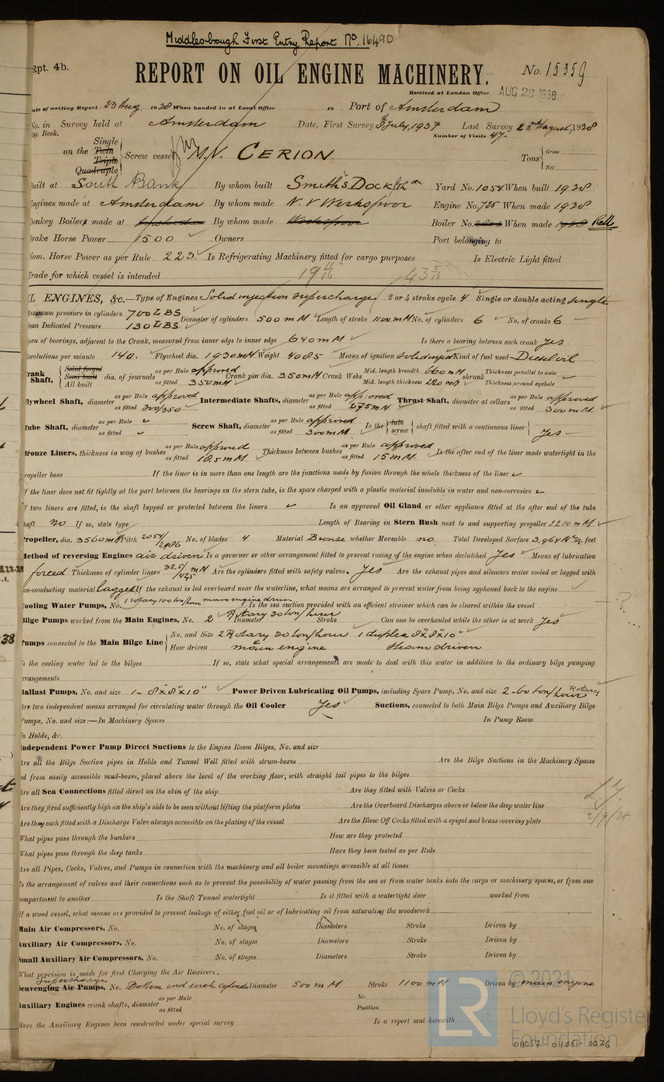 Middlesbrough First Entry Report No. 16490
Rpt. 4b.
REPORT ON OIL ENGINE MACHINERY.
No. 15359
Received at London Office AUG 26 1938
Date of writing Report 23 Aug 1938 When handed in at Local Office 19 Port of Amsterdam
No. in Survey held at Amsterdam Date, First Survey 8 July, 1937 Last Survey 22nd August, 1938
Reg. Book. Number of Visits 47.
on the Single Twin Triple Quadruple Screw vessel M.V. CERION Tons Gross Net
Built at South Bank By whom built Smith's Dock Yard No. 1054 When built 1938
Engines made at Amsterdam By whom made N.V. Werkspoor Engine No. 725 When made 1938
Donkey Boilers made at Amsterdam By whom made Werkspoor Boiler No. When made 1938
Brake Horse Power 1500 Owners Port belonging to
Nom. Horse Power as per Rule 223 Is Refrigerating Machinery fitted for cargo purposes Is Electric Light fitted
Trade for which vessel is intended
OIL ENGINES, &c.—Type of Engines Solid injection Supercharge 2 or 4 stroke cycle 4 Single or double acting Single
Maximum pressure in cylinders 700 LBS Diameter of cylinders 500 mM Length of stroke 1100 mM No. of cylinders 6 No. of cranks 6
Mean Indicated Pressure 130 LBS
Span of bearings, adjacent to the Crank, measured from inner edge to inner edge 640 mM Is there a bearing between each crank Yes
Revolutions per minute 140. Flywheel dia. 1930 mM Weight 4085 Means of ignition Kind of fuel used Diesel oil
Crank Shaft, Solid forged Semi built All built dia. of journals as per Rule approved as fitted 350 mM Crank pin dia. 350 mM Crank Webs Mid. length breadth 660 mM Mid. length thickness 220 mM shrunk Thickness parallel to axis Thickness around eyehole
Flywheel Shaft, diameter as per Rule approved as fitted 300/350 Intermediate Shafts, diameter as per Rule approved as fitted 275 mM Thrust Shaft, diameter at collars as per Rule approved as fitted 300 mM
Tube Shaft, diameter as per Rule as fitted Screw Shaft, diameter as per Rule approved as fitted 300 mM Is the tube screw shaft fitted with a continuous liner Yes
Bronze Liners, thickness in way of bushes as per Rule approved as fitted 18.5 mM Thickness between bushes as per Rule approved as fitted 15 mM Is the after end of the liner made watertight in the
propeller boss If the liner is in more than one length are the junctions made by fusion through the whole thickness of the liner
If the liner does not fit tightly at the part between the bearings on the stern tube, is the space charged with a plastic material insoluble in water and non-corrosive
If two liners are fitted, is the shaft lapped or protected between the liners Is an approved Oil Gland or other appliance fitted at the after end of the tube
shaft no If so, state type Length of Bearing in Stern Bush next to and supporting propeller 1210 mM
Propeller, dia. 3560 mM Pitch No. of blades 4 Material Bronze whether Moveable no Total Developed Surface 3.964 M² sq. feet
Method of reversing Engines air driven Is a governor or other arrangement fitted to prevent racing of the engine when declutched Yes Means of lubrication
forced Thickness of cylinder liners Are the cylinders fitted with safety valves. Yes Are the exhaust pipes and silencers water cooled or lagged with
non-conducting material lagged If the exhaust is led overboard near the water-line, what means are arranged to prevent water from being syphoned back to the engine
Cooling Water Pumps, No. 1 Rotary 100 ton/hour main engine driven Is the sea suction provided with an efficient strainer which can be cleared within the vessel
Bilge Pumps worked from the Main Engines, No. 2 Diameter Rotary 30 ton/hour Stroke Can one be overhauled while the other is at work Yes
Pumps connected to the Main Bilge Line No. and Size 2 Rotary 30 ton/hour 1 duplex 8"x8"x10"
How driven main engine Steam driven
Is the cooling water led to the bilges If so, state what special arrangements are made to deal with this water in addition to the ordinary bilge pumping
arrangements
Ballast Pumps, No. and size 1 - 8"x8"x10" Power Driven Lubricating Oil Pumps, including Spare Pump, No. and size 2 - 60 ton/hour Rotary
Are two independent means arranged for circulating water through the Oil Cooler Yes Suctions, connected to both Main Bilge Pumps and Auxiliary Bilge
Pumps, No. and size:—In Machinery Spaces In Pump Room
In Holds, &c.
Independent Power Pump Direct Suctions to the Engine Room Bilges, No. and size
Are all the Bilge Suction pipes in Holds and Tunnel Well fitted with strum-boxes Are the Bilge Suctions in the Machinery Spaces
led from easily accessible mud-boxes, placed above the level of the working floor, with straight tail pipes to the bilges
Are all Sea Connections fitted direct on the skin of the ship Are they fitted with Valves or Cocks
Are they fixed sufficiently high on the ship's side to be seen without lifting the platform plates Are the Overboard Discharges above or below the deep water line
Are they each fitted with a Discharge Valve always accessible on the plating of the vessel Are the Blow Off Cocks fitted with a spigot and brass covering plate
What pipes pass through the bunkers How are they protected
What pipes pass through the deep tanks Have they been tested as per Rule
Are all Pipes, Cocks, Valves, and Pumps in connection with the machinery and all boiler mountings accessible at all times
Is the arrangement of valves and their connections such as to prevent the possibility of water passing from the sea or from water tanks into the cargo or machinery spaces, or from one
compartment to another Is the Shaft Tunnel watertight Is it fitted with a watertight door worked from
If a wood vessel, what means are provided to prevent leakage of either fuel oil or of lubricating oil from saturating the woodwork
Main Air Compressors, No. No. of stages Diameters Stroke Driven by
Auxiliary Air Compressors, No. No. of stages Diameters Stroke Driven by
Small Auxiliary Air Compressors, No. No. of stages Diameters Stroke Driven by
What provision is made for first Charging the Air Receivers
Supercharge
Scavenging Air Pumps, No. Bottom end each cylinder Diameter 500 mM Stroke 1100 mM Driven by main engine
Auxiliary Engines crank shafts, diameter as per Rule as fitted No. Position
Have the Auxiliary Engines been constructed under special survey Is a report sent herewith
LR
© 2021
Lloyd's Register
Foundation
011057-011051-0076